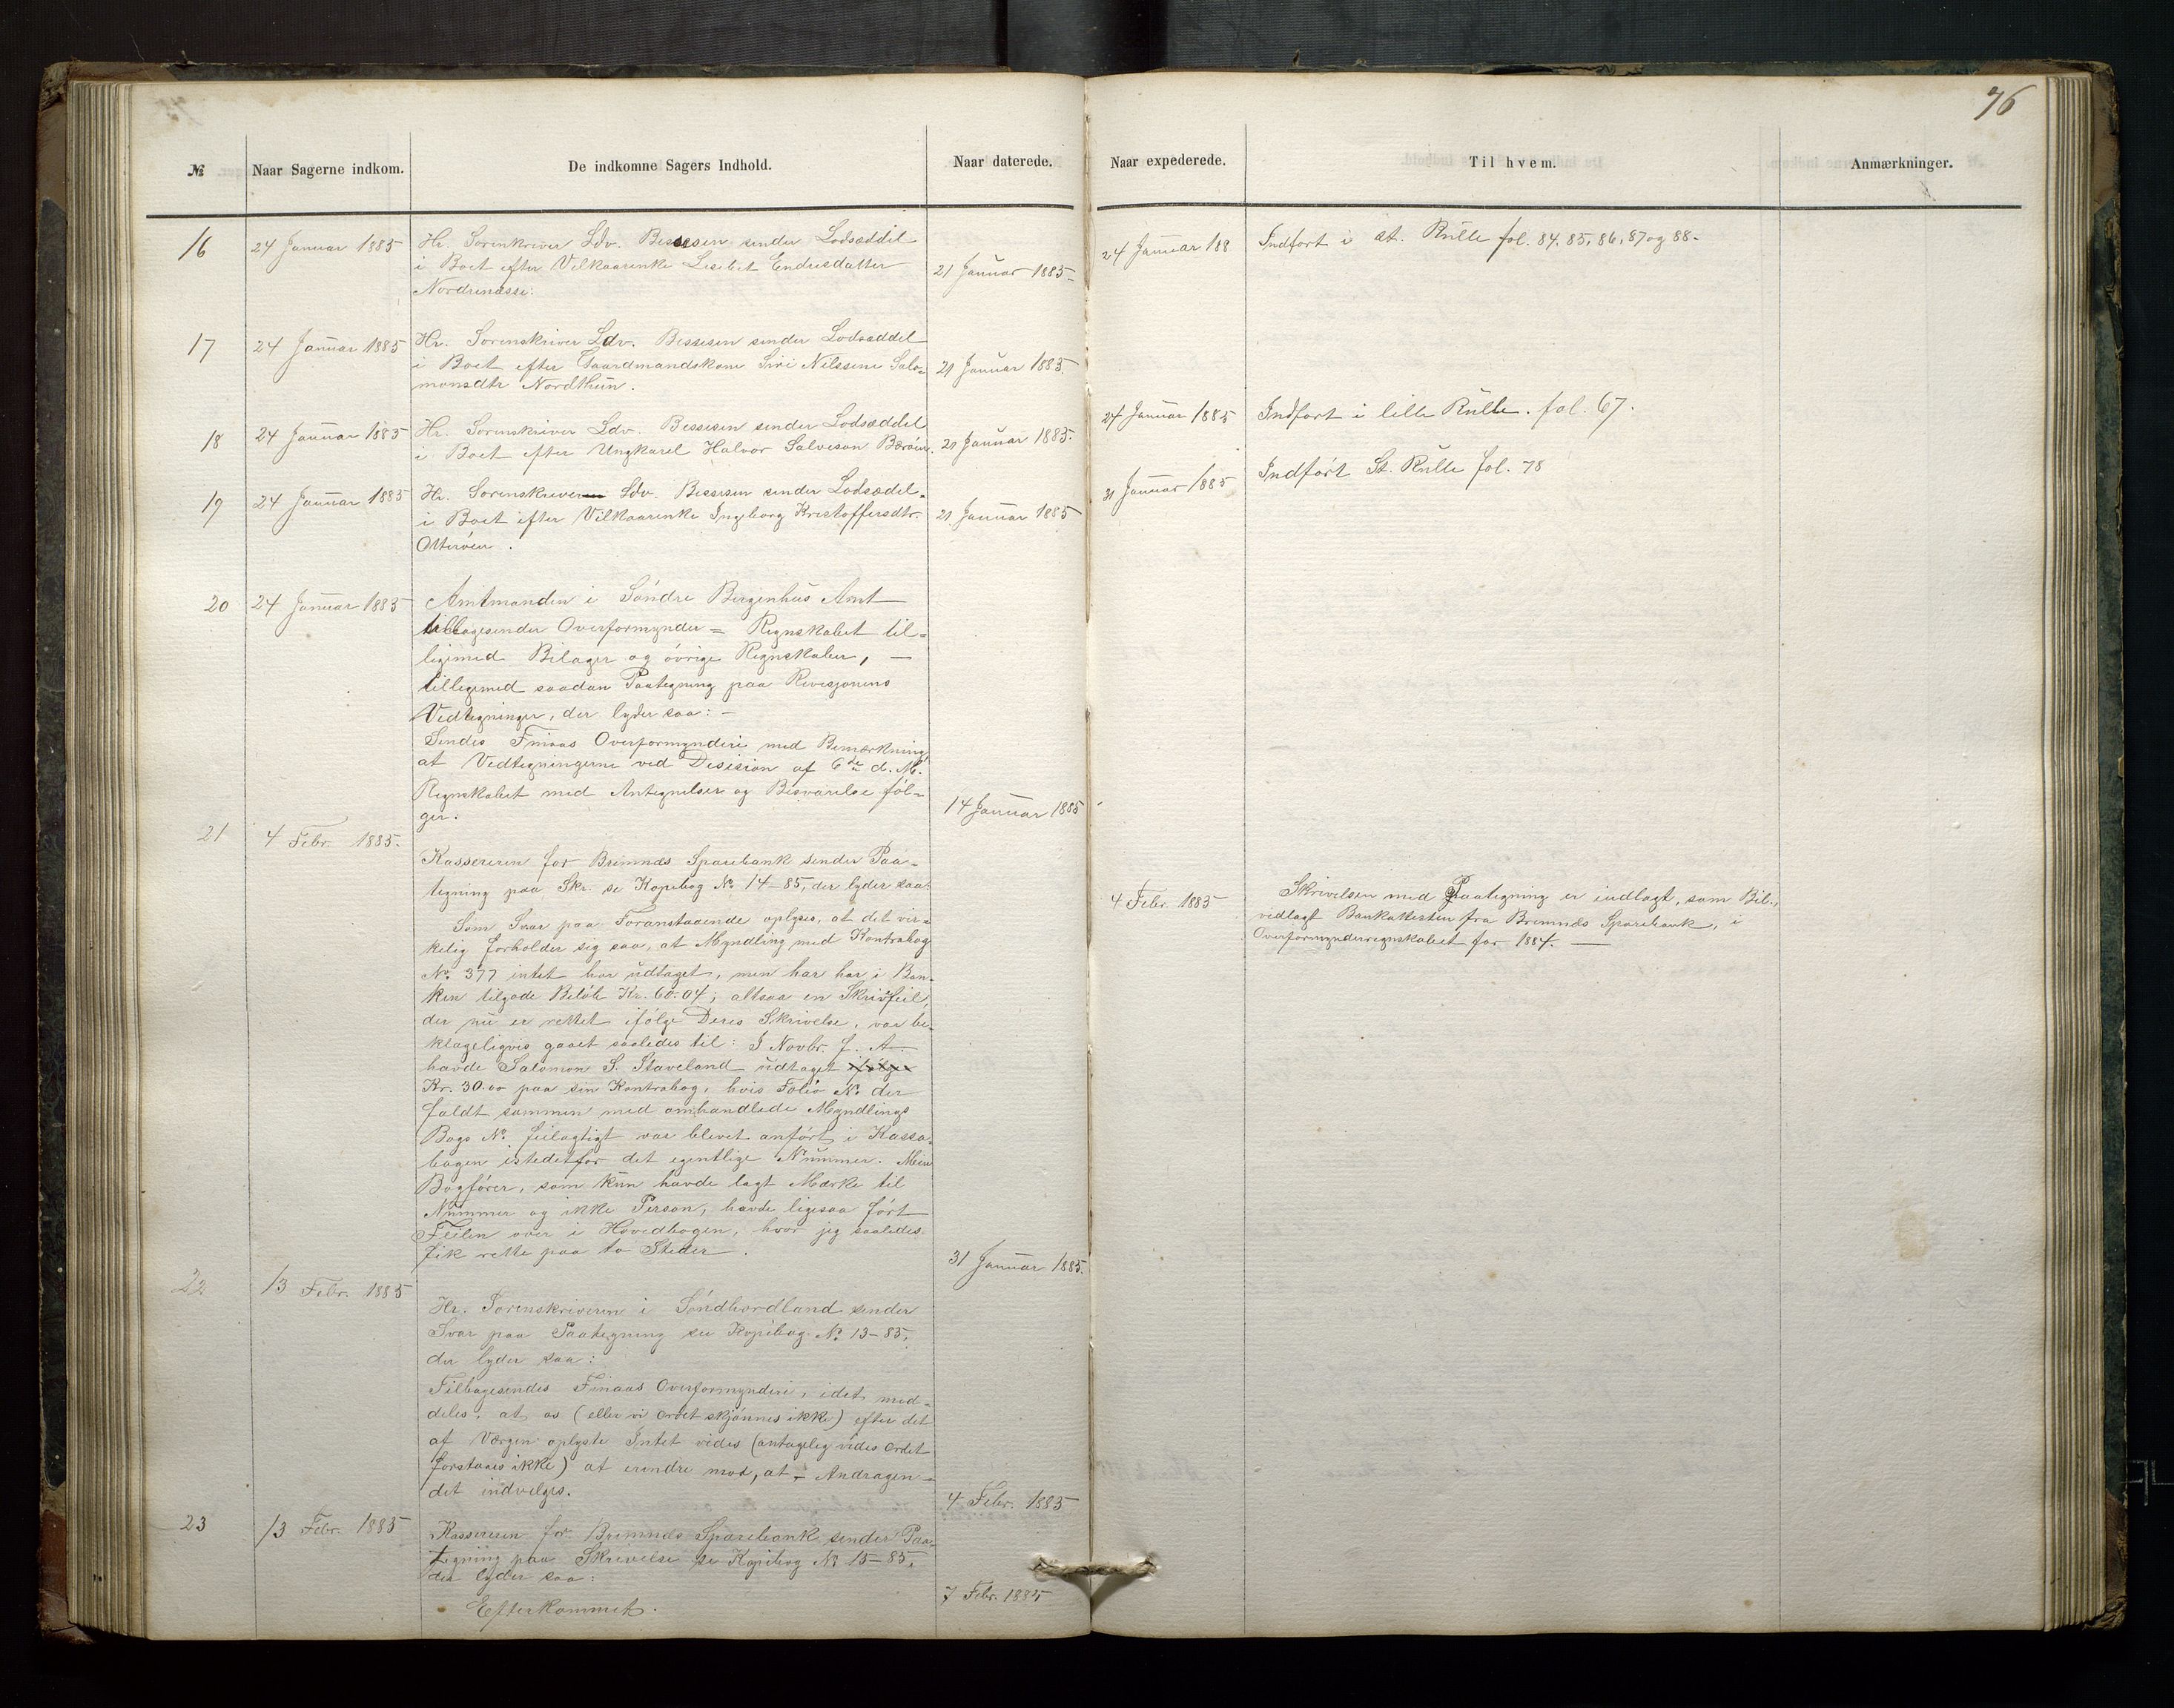 76
№ Naar Sagerne indkom. De indkomne Sagers Indhold. Naar daterede. Naar expederede. Til hvem. Anmærkninger.
16 24 Januar 1885 Hr. Sorenskriver Ldv. Bessesen sender Lodsæddel
i Boet efter Vilkaarenke Lisebet Endresdatter
Nordrenæsse. 21 Januar 1885
24 Januar 188 Indført i st. Rulle fol. 84, 85, 86, 87 og 88.
17 24 Januar 1885 Hr. Sorenskriver Ldv. Bessesen sender Lodsæddel
i Boet efter Gaardmandskone Siri Nilssine Salo-
monsdtr Nordthun. 21 Januar 1885.
18 24 Januar 1885 Hr. Sorenskriver Ldv. Bessesen sender Lodsæddel
i Boet efter Ungkarel Halvor Salveson Børøen. 21 Januar 1885.
24 Januar 1885 Indført i lille Rulle. fol. 67.
19 24 Januar 1885 Hr. Sorenskriveren Ldv. Bessesen sender Lodsædel
i Boet efter Vilkaarenke Ingeborg Kristoffersdtr.
Otterøen. 21 Januar 1885
31 Januar 1885 Indført St. Rulle fol. 78
20 24 Januar 1885 Amtmanden i Søndre Bergenhus Amt
tilbagesender Overformynder = Regnskabet til-
ligemed Bilager og øvrige Regnskaber, —
tilligemed saadan Paategning paa Revisjonens
Vedtegninger, der lyder saa: —
Sendes Finaas Overformynderi med Bemærkning
at Vedtegningerne ved Desision af 6te d. M.
Regnskabet med Antegnelser og Besvarelse føl-
ger. 14 Januar 1885
21 4 Febr. 1885.
Kassereren for Bremnæs Sparebank sender Paa-
tegning paa Skr. se Kopibog No 14-85, der lyder saa:
Som Svar paa Foranstaaende oplyses, at det vir-
kelig forholder sig saa, at Myndling med Kontrabog
No 377 intet har udtaget, men har har i Ban-
ken tilgode Beløb Kr. 60.04; altsaa en Skrivfeil,
der nu er rettet ifølge Deres Skrivelse, var be-
klageligvis gaaet saaledes til: I Novbr. f. A.
havde Salomon S. Staveland udtaget ifølge
Kr. 30.00 paa sin Kontrabog, hvis Folio No der
faldt sammen med omhandlede Myndlings
Bogs No. feilagtigt var blevet anført i Kassa-
bogen istedetfor det egentlige Nummer. Min
Bogfører, som kun havde lagt Mærke til
Nummer og ikke Person, havde ligesaa ført
Feilen over i Hovedbogen, hvor jeg saaledes
fik rette paa to Steder. 31 Januar 1885.
4 Febr. 1885 Skrivelsen med Paategning er indlagt, som Bil.,
vedlagt Bankattesten fra Bremnæs Sparebank, i
Overformynderregnskabet for 1884. —
22 13 Febr. 1885
Hr. Sorenskriveren i Søndhordland sender
Svar paa Paategning see Kopibog No 13-85,
der lyder saa:
Tilbagesendes Finaas Overformynderi, idet med-
deles, at os (eller vi Ordet skjønnes ikke) efter det
af Værgen oplyste Intet vides (antagelig vides Ordet
forstaaes ikke) at erindre mod, at - Andragen-
det indvelges. 4 Febr. 1885
23 13 Febr. 1885 Kassereren for Bremnæs Sparebank sender Paa-
tegning paa Skrivelse se Kopibog No 15-85,
der lyder saa:
Efterkommet. 7 Febr. 1885